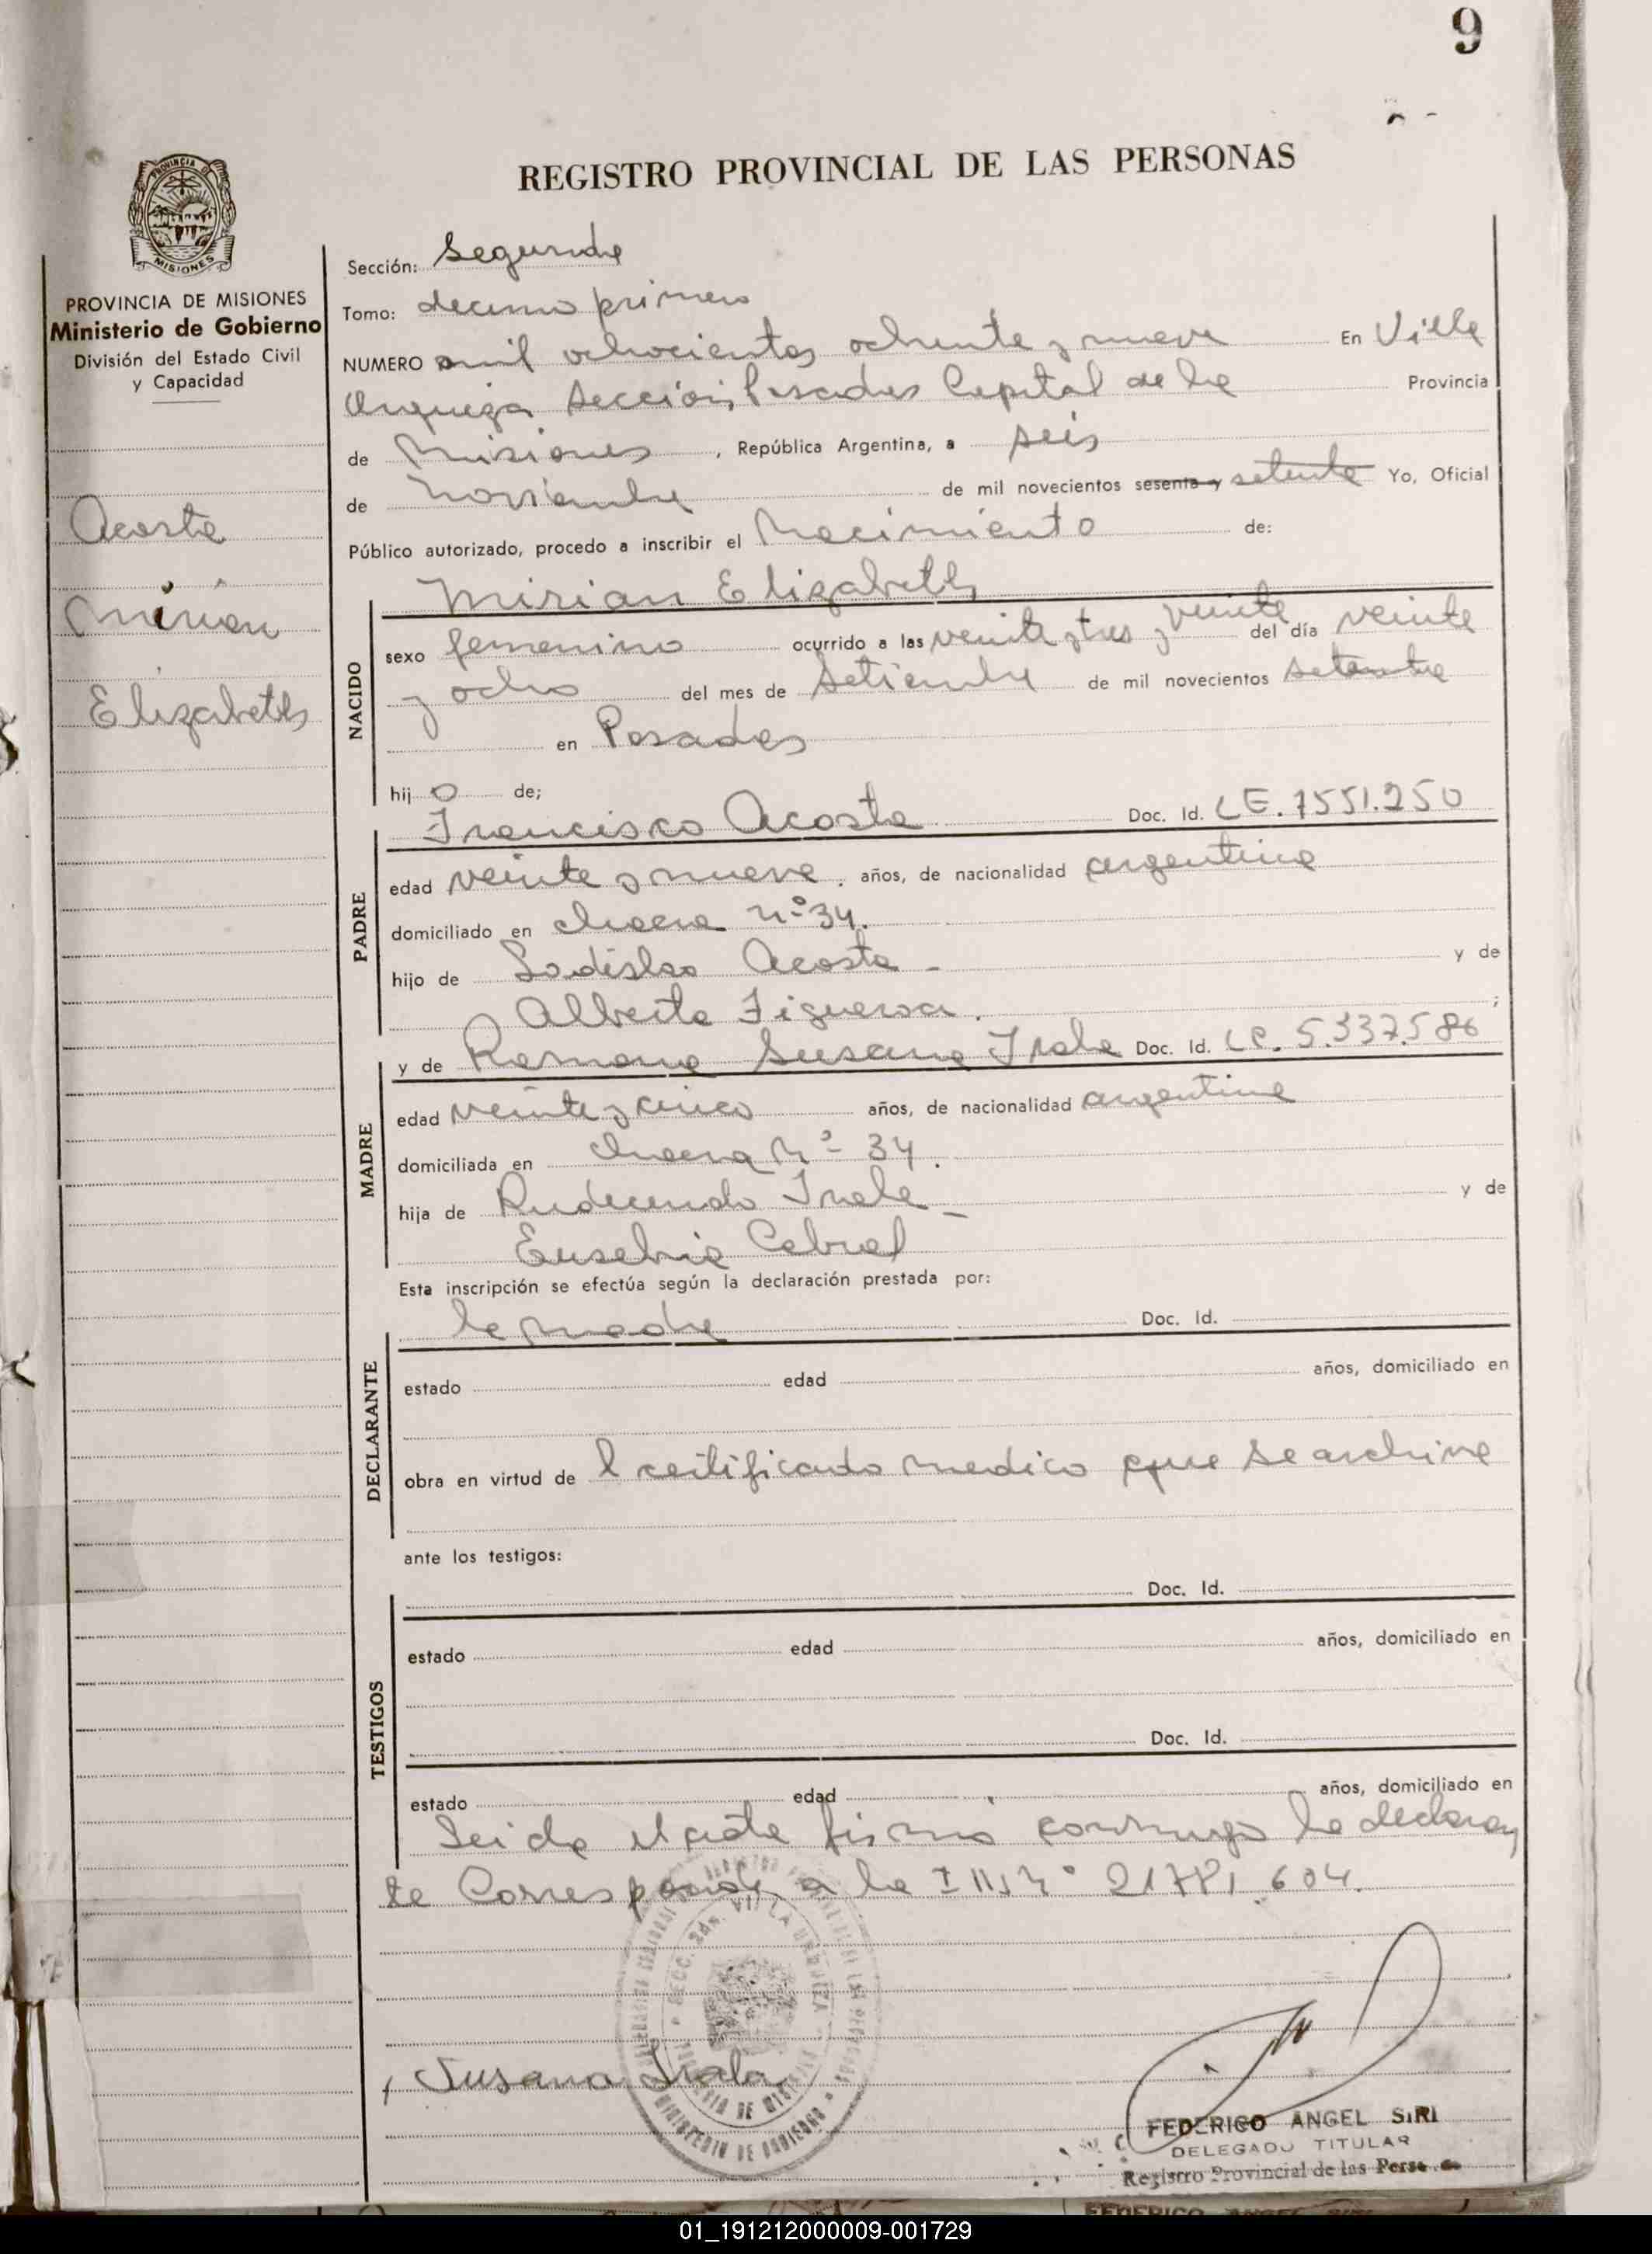 9
REGISTRO PROVINCIAL DE LAS PERSONAS
PROVINCIA
MISIONES
PROVINCIA DE MISIONES
Ministerio de Gobierno
División del Estado Civil
y Capacidad
Acosta
Mirian
Elizabeth
Sección: Segunda
Tomo: decimo primero
NUMERO mil ochocientos ochenta y nueve En Villa
Urquiza Sección, Posadas Capital de la Provincia
de Misiones, República Argentina, a seis
de noviembre de mil novecientos sesenta y setenta Yo, Oficial
Público autorizado, procedo a inscribir el Nacimiento de:
Mirian Elizabeth
NACIDO
sexo femenino ocurrido a las veinte y tres y veinte del día veinte
y ocho del mes de Setiembre de mil novecientos setenta
en Posadas
hij o de;
Francisco Acosta Doc. Id. LE. 7551.250
PADRE
edad veinte y nueve. años, de nacionalidad argentina
domiciliado en chacra nº 34.
hijo de Ladislao Acosta - y de
Alberta Figueroa. ;
y de Ramona Susana Irala Doc. Id. LC. 5.337.586
MADRE
edad veinte y cinco años, de nacionalidad argentina
domiciliada en chacra Nº 34.
hija de Rudecindo Irala - y de
Eusebia Cabral
Esta inscripción se efectúa según la declaración prestada por:
la madre Doc. Id.
DECLARANTE
estado edad años, domiciliado en
obra en virtud de l certificado medico que se archiva
ante los testigos:
Doc. Id.
TESTIGOS
estado edad años, domiciliado en
Doc. Id.
estado edad años, domiciliado en
Leida el acta firmó conmigo la declaran
te Corresponde a la nº 21.781.604.
SECC. 2da. VILLA URQUIZA
MINISTERIO DE GOBIERNO
Susana Irala
FEDERICO ANGEL SIRI
DELEGADO TITULAR
Registro Provincial de las
FEDERICO ANGEL
01_191212000009-001729